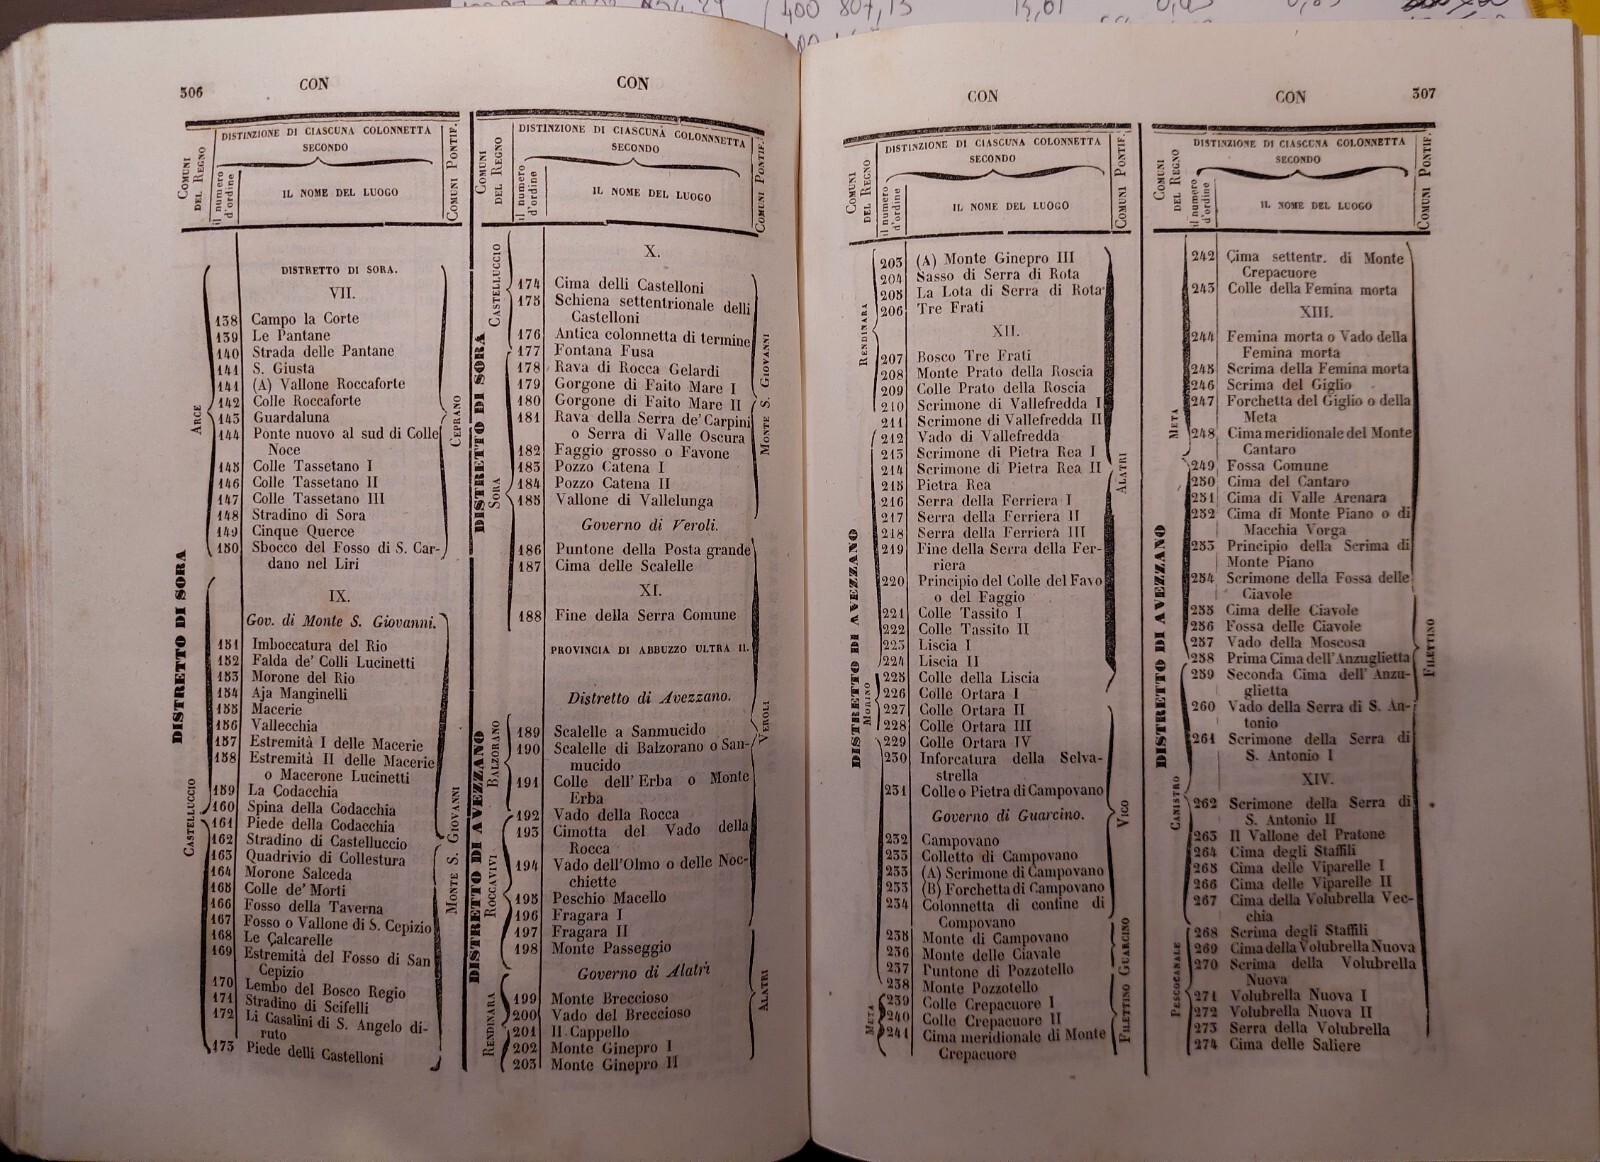 306
CON
COMUNI DEL REGNO
DISTINZIONE DI CIASCUNA COLONNETTA
SECONDO
il numero d'ordine
IL NOME DEL LUOGO
COMUNI PONTIF.
DISTRETTO DI SORA
ARCE
CEPRANO
DISTRETTO DI SORA.
VII.
138 Campo la Corte
139 Le Pantane
140 Strada delle Pantane
141 S. Giusta
141 (A) Vallone Roccaforte
142 Colle Roccaforte
143 Guardaluna
144 Ponte nuovo al sud di Colle
Noce
145 Colle Tassetano I
146 Colle Tassetano II
147 Colle Tassetano III
148 Stradino di Sora
149 Cinque Querce
150 Sbocco del Fosso di S. Car-
dano nel Liri
IX.
Gov. di Monte S. Giovanni.
CASTELLUCCIO
MONTE S. GIOVANNI
151 Imboccatura del Rio
152 Falda de' Colli Lucinetti
153 Morone del Rio
154 Aja Manginelli
155 Macerie
156 Vallecchia
157 Estremità I delle Macerie
158 Estremità II delle Macerie
o Macerone Lucinetti
159 La Codacchia
160 Spina della Codacchia
161 Piede della Codacchia
162 Stradino di Castelluccio
163 Quadrivio di Collestura
164 Morone Salceda
165 Colle de' Morti
166 Fosso della Taverna
167 Fosso o Vallone di S. Cepizio
168 Le Calcarelle
169 Estremità del Fosso di San
Cepizio
170 Lembo del Bosco Regio
171 Stradino di Scifelli
172 Li Casalini di S. Angelo di-
ruto
173 Piede delli Castelloni
CON
COMUNI DEL REGNO
DISTINZIONE DI CIASCUNA COLONNNETTA
SECONDO
il numero d'ordine
IL NOME DEL LUOGO
COMUNI PONTIF.
DISTRETTO DI SORA
CASTELLUCCIO
SORA
MONTE S. GIOVANNI
X.
174 Cima delli Castelloni
175 Schiena settentrionale delli
Castelloni
176 Antica colonnetta di termine
177 Fontana Fusa
178 Rava di Rocca Gelardi
179 Gorgone di Faito Mare I
180 Gorgone di Faito Mare II
181 Rava della Serra de' Carpini
o Serra di Valle Oscura
182 Faggio grosso o Favone
183 Pozzo Catena I
184 Pozzo Catena II
185 Vallone di Vallelunga
Governo di Veroli.
186 Puntone della Posta grande
187 Cima delle Scalelle
XI.
188 Fine della Serra Comune
PROVINCIA DI ABBUZZO ULTRA II.
Distretto di Avezzano.
DISTRETTO DI AVEZZANO
BALZORANO
ROCCAVIVI
RENDINARA
VEROLI
ALATRI
189 Scalelle a Sanmucido
190 Scalelle di Balzorano o San-
mucido
191 Colle dell'Erba o Monte
Erba
192 Vado della Rocca
193 Cimotta del Vado della
Rocca
194 Vado dell'Olmo o delle Noc-
chiette
195 Peschio Macello
196 Fragara I
197 Fragara II
198 Monte Passeggio
Governo di Alatri
199 Monte Breccioso
200 Vado del Breccioso
201 Il Cappello
202 Monte Ginepro I
203 Monte Ginepro II
CON
COMUNI DEL REGNO
DISTINZIONE DI CIASCUNA COLONNETTA
SECONDO
il numero d'ordine
IL NOME DEL LUOGO
COMUNI PONTIF.
DISTRETTO DI AVEZZANO
RENDINARA
MORINO
META
ALATRI
VICO
GUARCINO
FILETTINO
203 (A) Monte Ginepro III
204 Sasso di Serra di Rota
205 La Lota di Serra di Rota
206 Tre Frati
XII.
207 Bosco Tre Frati
208 Monte Prato della Roscia
209 Colle Prato della Roscia
210 Scrimone di Vallefredda I
211 Scrimone di Vallefredda II
212 Vado di Vallefredda
213 Scrimone di Pietra Rea I
214 Scrimone di Pietra Rea II
215 Pietra Rea
216 Serra della Ferriera I
217 Serra della Ferriera II
218 Serra della Ferriera III
219 Fine della Serra della Fer-
riera
220 Principio del Colle del Favo
o del Faggio
221 Colle Tassito I
222 Colle Tassito II
223 Liscia I
224 Liscia II
225 Colle della Liscia
226 Colle Ortara I
227 Colle Ortara II
228 Colle Ortara III
229 Colle Ortara IV
230 Inforcatura della Selva-
strella
231 Colle o Pietra di Campovano
Governo di Guarcino.
232 Campovano
233 Colletto di Campovano
233 (A) Scrimone di Campovano
233 (B) Forchetta di Campovano
234 Colonnetta di confine di
Compovano
235 Monte di Campovano
236 Monte delle Ciavale
237 Puntone di Pozzotello
238 Monte Pozzotello
239 Colle Crepacuore I
240 Colle Crepacuore II
241 Cima meridionale di Monte
Crepacuore
CON
307
COMUNI DEL REGNO
DISTINZIONE DI CIASCUNA COLONNETTA
SECONDO
il numero d'ordine
IL NOME DEL LUOGO
COMUNI PONTIF.
DISTRETTO DI AVEZZANO
META
CANISTRO
PESCOCANALE
FILETTINO
242 Cima settentr. di Monte
Crepacuore
243 Colle della Femina morta
XIII.
244 Femina morta o Vado della
Femina morta
245 Scrima della Femina morta
246 Scrima del Giglio
247 Forchetta del Giglio o della
Meta
248 Cima meridionale del Monte
Cantaro
249 Fossa Comune
250 Cima del Cantaro
251 Cima di Valle Arenara
252 Cima di Monte Piano o di
Macchia Vorga
253 Principio della Scrima di
Monte Piano
254 Scrimone della Fossa delle
Ciavole
255 Cima delle Ciavole
256 Fossa delle Ciavole
257 Vado della Moscosa
258 Prima Cima dell'Anzuglietta
259 Seconda Cima dell'Anzu-
glietta
260 Vado della Serra di S. An-
tonio
261 Scrimone della Serra di
S. Antonio I
XIV.
262 Scrimone della Serra di
S. Antonio II
263 Il Vallone del Pratone
264 Cima degli Staffili
265 Cima delle Viparelle I
266 Cima delle Viparelle II
267 Cima della Volubrella Vec-
chia
268 Scrima degli Staffili
269 Cima della Volubrella Nuova
270 Scrima della Volubrella
Nuova
271 Volubrella Nuova I
272 Volubrella Nuova II
273 Serra della Volubrella
274 Cima delle Saliere